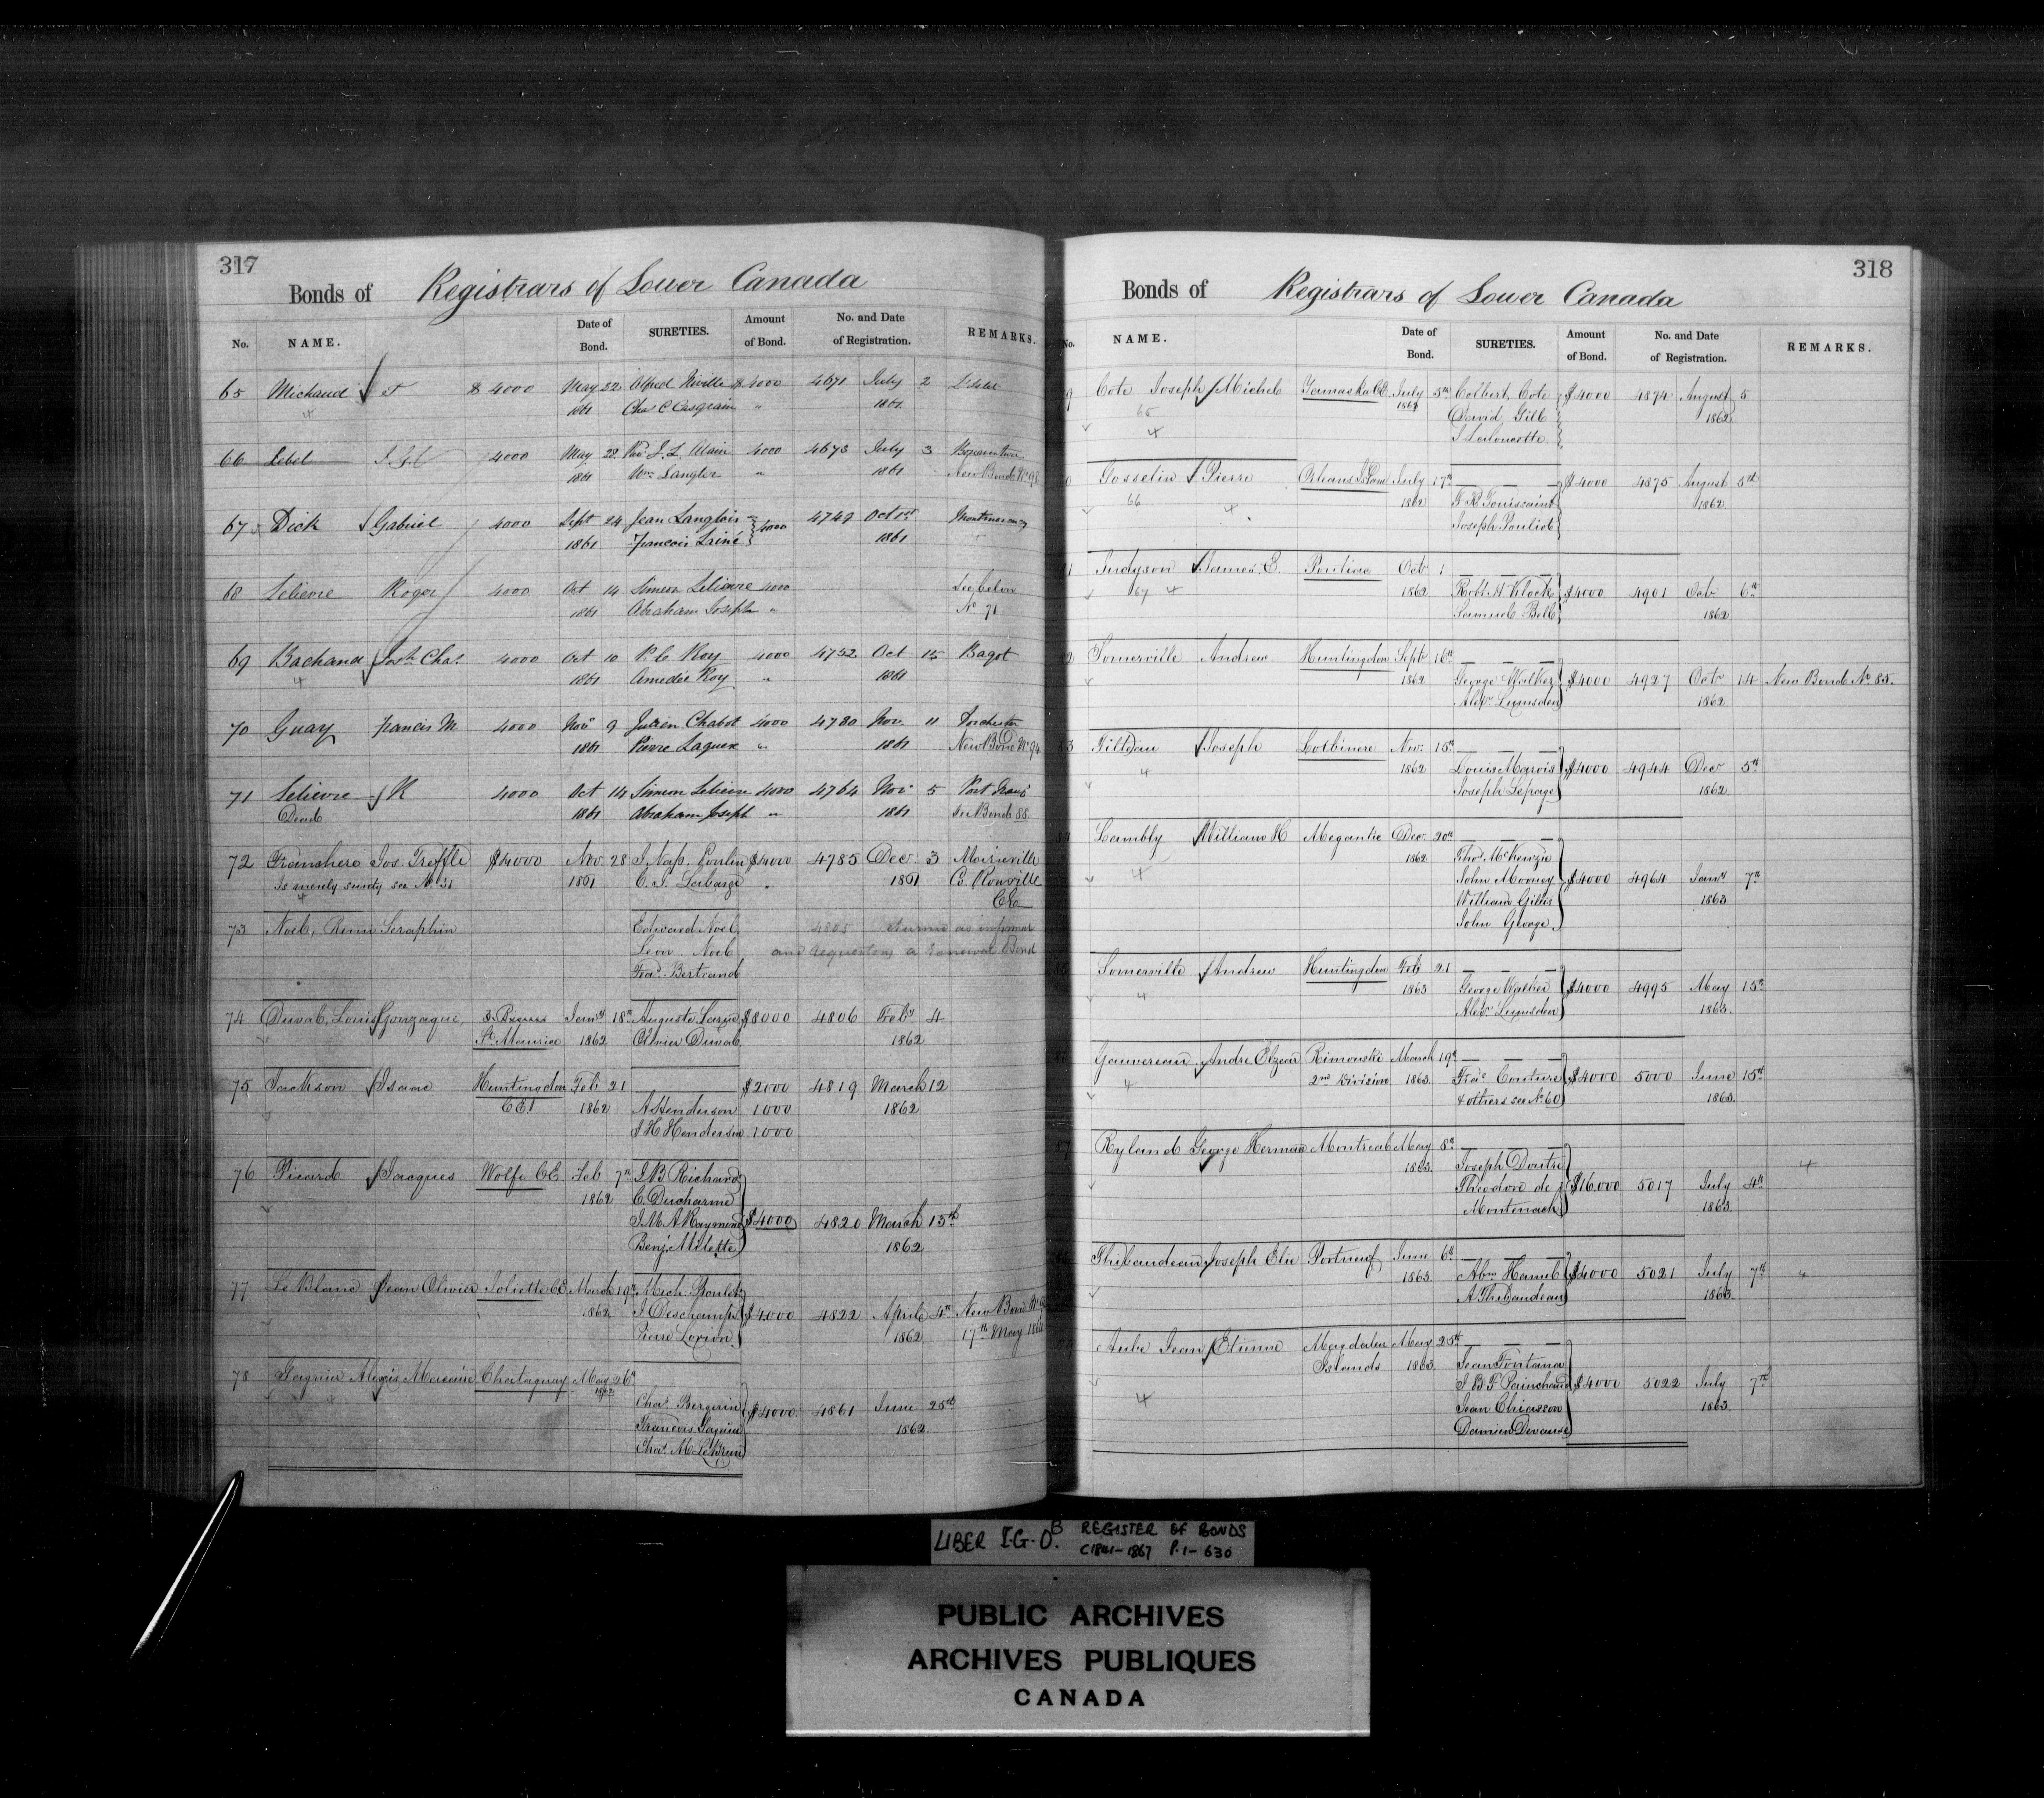 317
Bonds of Registrars of Lower Canada
No. NAME. Date of Bond. SURETIES. Amount of Bond. No. and Date of Registration. REMARKS.
65 Michaud T $ 4000 May 22 Alfred $ 4000 4671 July 2 L'Islet
4 1861 Chas C Casgrain " 1861
66 Lebel J.G.L 4000 May 28 J. L. Alain 4000 4673 July 3 Bonaventure
1861 Wm Langler " 1861 New Bond No 98
67 Dick Gabriel 4000 Sept 24 Jean Langlois 4000 4749 Oct 1st Montmorency
1861 Francois Lainé 1861
68 Lelievre Roger 4000 Oct 14 Simeon Lelievre 4000 See below
1861 Abraham Joseph " No 71
69 Bachand Josh Chas 4000 Oct 10 P. C Roy 4000 4752 Oct 15 Bagot
4 1861 Amedée Roy " 1861
70 Guay Francis M 4000 Nov 9 Julien Chabot 4000 4780 Nov. 11 Dorchester
1861 Pierre Lagueux " 1861 New Bond No 94
71 Lelievre R 4000 Oct 14 Simeon Lelievre 4000 4764 Nov 5 Port
Dead 1861 Abraham Joseph " 1861 See Bond 88
72 Franchere Jos. Treffle $4000 Nov. 28 J. Nap. Poulin $4000 4785 Dec 3 Marieville
Is merely surety see No 31 1861 C. T. Labarge " 1861 Co. Rouville
4 CE
73 Noel, Remi Seraphin Edward Noel, 4805 as informal
Leon Noel and requesting a renewal Bond
Fras. Bertrand
74 Duval, Louis Gonzague, 3 Rivers Jany 18th Auguste Larue $8000 4806 Feby 4
St. Maurice 1862 Olivier Duval 1862
75 Jackson Isaac Huntingdon Feb 21 $2000 4819 March 12
C.E. 1862 A Henderson 1000 1862
J H Henderson 1000
76 Picard Jacques Wolfe CE Feb 7th J. B Richard
1862 C. Ducharme
J. M. A Raymond $4000 4820 March 13th
Benj. Milette 1862
77 Le Blanc Jean Olivier Joliette CE March 19th Mich. Poulet
1862 J Deschamps $4000 4822 April 4th New Bond No
Pierre Lorion 1862 17th May
78 Gagnier Alexis Macaire Chateaguay May 26th
1862
Chas Bergevin $4000 4861 June 25th
Francois Gagnier 1862.
Chas. M. LeBrun
318
Bonds of Registrars of Lower Canada
No. NAME. Date of Bond. SURETIES. Amount of Bond. No. and Date of Registration. REMARKS.
9 Cote Joseph Michel Yamaska CE July 5th Colbert Cote $4000 4874 August 5
65 David Gill 1862
4
0 Gosselin Pierre Orleans Island July 17th $4000 4875 August 5th
66 1862 F. R Toussaint 1862
4 Joseph Pouliot
1 Judgson James E. Pontiac Oct 1
67 4 1862 Robt. H Klock $4000 4901 Oct 6th
Samuel Bell 1862
2 Somerville Andrew Huntingdon Sept 16th
1862 George Walker $4000 4927 Oct 14 New Bond No. 85.
Alexr. Lumsden 1862
3 Filteau Joseph Lotbiniere Nov. 15th
4 1862 Louis Marois $4000 4944 Dec 5th
Joseph Lepage 1862.
84 Lambly William H Megantic Dec 20th
4 1862 Thos. McKenzie
John Mooney $4000 4964 Jany 7th
William Gillis 1863
John George
Somerville Andrew Huntingdon Feb 21
4 1863 George Walker $4000 4995 May 15th
Alexr Lumsden 1863.
86 Gauvereau Andre Elzear Rimouski March 19th
4 2nd Division 1863. Fras Couture $4000 5000 June 15th
& others see No. 60 1863.
87 Ryland George Herman Montreal May 8th
1863. Joseph Doutre 4
Theodore de $16.000 5017 July 4th
Montenach 1863.
Thibaudeau Joseph Elie Portneuf June 6th
1863. Abm Hamel $4000 5021 July 7th 4
A Thibaudeau 1863.
Aube Jean Etienne Magdalen May 25th
Islands 1863. Jean Fontana
J B F Painchaud $4000 5022 July 7th
4 Jean Chiasson 1863.
Damien Devause
LIBER I.G.O.B REGISTER OF BONDS
C1841-1867 P.1-630
PUBLIC ARCHIVES
ARCHIVES PUBLIQUES
CANADA